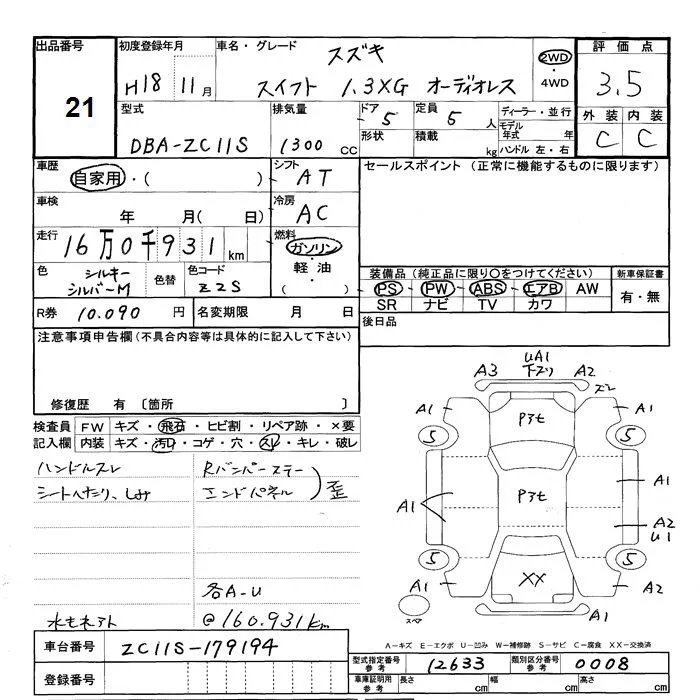 出品番号 初度登録年月 車名・グレード スズキ 2WD・4WD 評価点
21 H18 11月 スイフト 1.3XG オーディオレス 3.5
型式 排気量 ドア 5 定員 5 人 ディーラー・並行 外装 内装
DBA-ZC11S 1300 CC 形状 積載 kg モデル年式 年 C C
ハンドル 左・右
車歴 自家用・( ) シフト AT セールスポイント (正常に機能するものに限ります)
車検 年 月( 日) 冷房 AC
走行 16万0千931km 燃料 ガソリン・軽油・( )
色 シルキーシルバーM 色替 色コード Z2S
装備品 (純正品に限り○をつけてください) 新車保証書
PS・PW・ABS・エアB・AW 有・無
SR ナビ TV カワ
R券 10.090 円 名変期限 月 日 後日品
注意事項申告欄 (不具合内容等は具体的に記入して下さい)
修復歴 有 〔箇所 〕
検査員記入欄 FW キズ・飛石・ヒビ割・リペア跡・×要
内装 キズ・汚れ・コゲ・穴・スレ・キレ・破レ
ハンドルスレ Rバンパーステー
シートへたり、しみ エンドパネル )歪
各A-U
@160.931km
A3 UA1 A2
A1 P3t A1
5 5
A1 P3t A1
A2
U1
5 5
A1 XX A2
A1
スペア
車台番号 ZC11S-179194
登録番号
A-キズ E-エクボ U-凹み W-補修跡 S-サビ C-腐食 XX-交換済
型式指定番号 参考 12633 類別区分番号 参考 0008
車庫証明用 参考 長さ cm 幅 cm 高さ cm